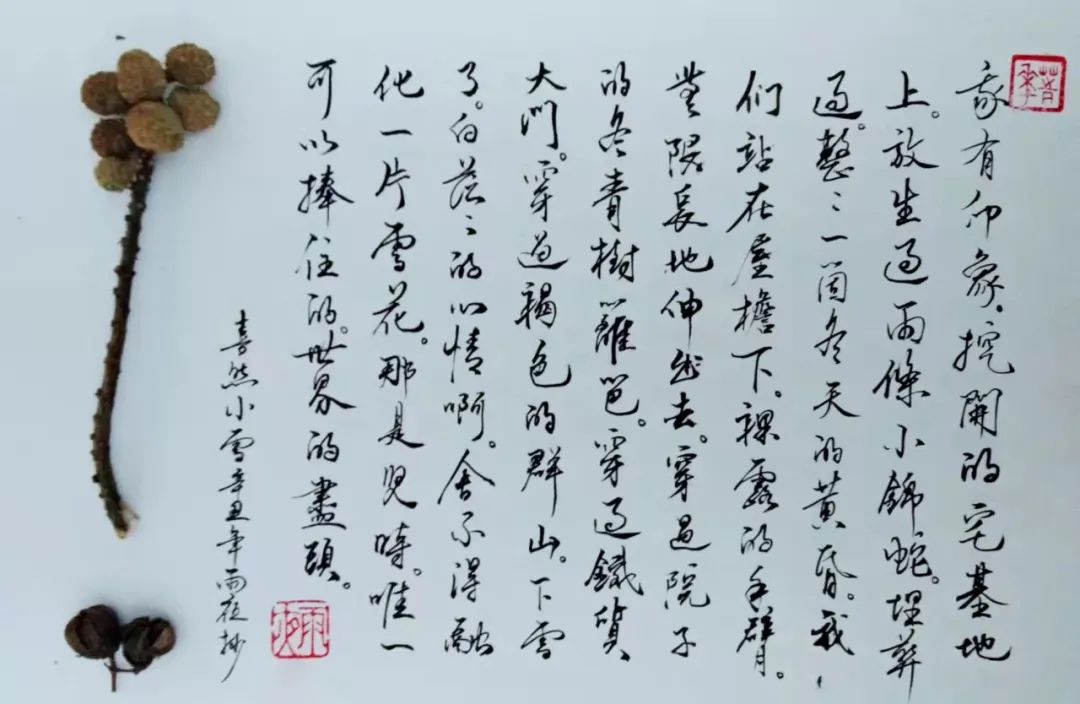 家有印象。挖開的宅基地
上。放生過兩條小錦蛇。埋葬
過。整〻一箇冬天的黃昏。我
们站在屋檐下。裸露的手臂。
無限長地伸出去。穿過院子
的冬青樹籬笆。穿過鐵質
大門。穿過褐色的群山。下雪
了。白茫〻的心情啊。舍不得融
化一片雪花。那是兒時。唯一
可以捧住的。世界的盡頭。
喜然小雪辛丑年雨夜抄